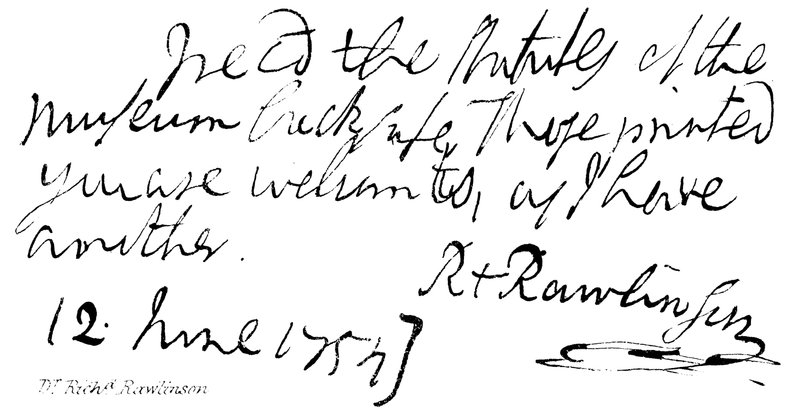 I recd the Statutes of the
Muſeum back ſafe, Thoſe printed
you are welcome to, as I have
another.
R+Rawlinſon
12. June 1754]
Dr. Richd. Rawlinson